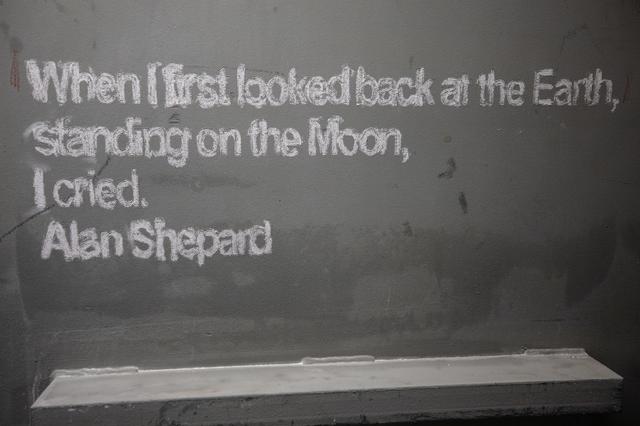 When I first looked back at the Earth,
standing on the Moon,
I cried.
Alan Shepard